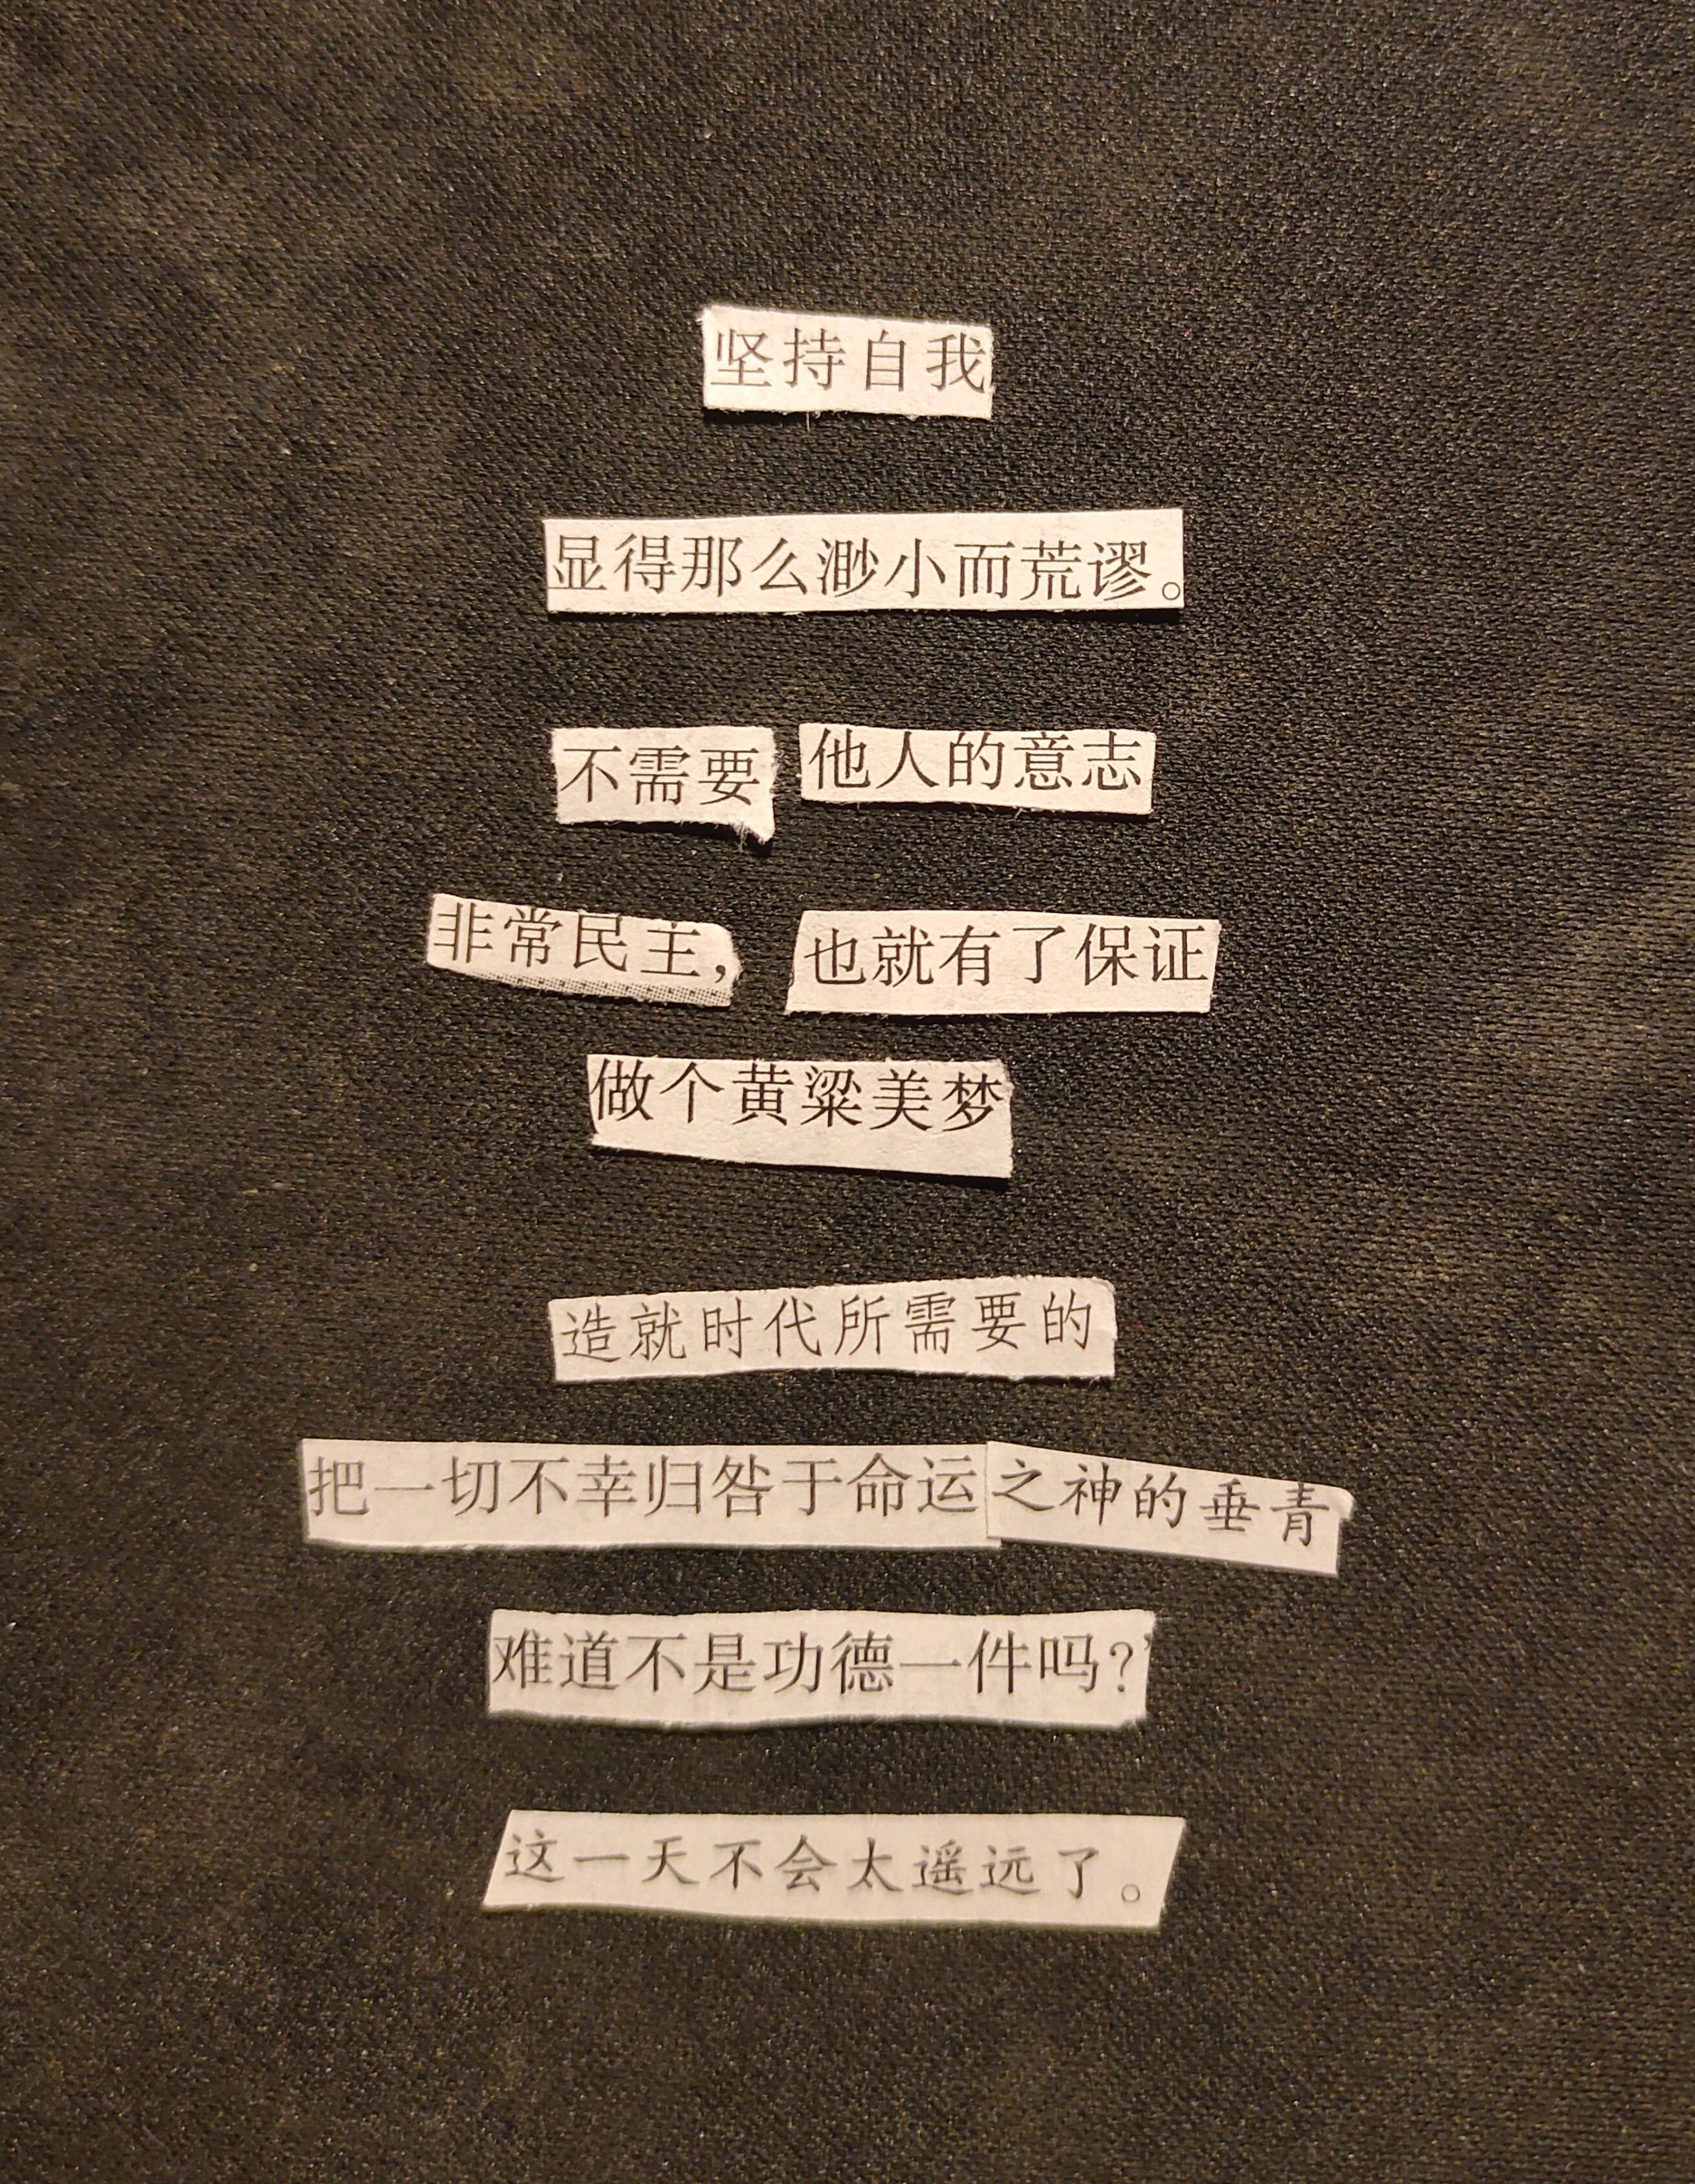 坚持自我
显得那么渺小而荒谬。
不需要 他人的意志
非常民主， 也就有了保证
做个黄粱美梦
造就时代所需要的
把一切不幸归咎于命运之神的垂青
难道不是功德一件吗？’
这一天不会太遥远了。